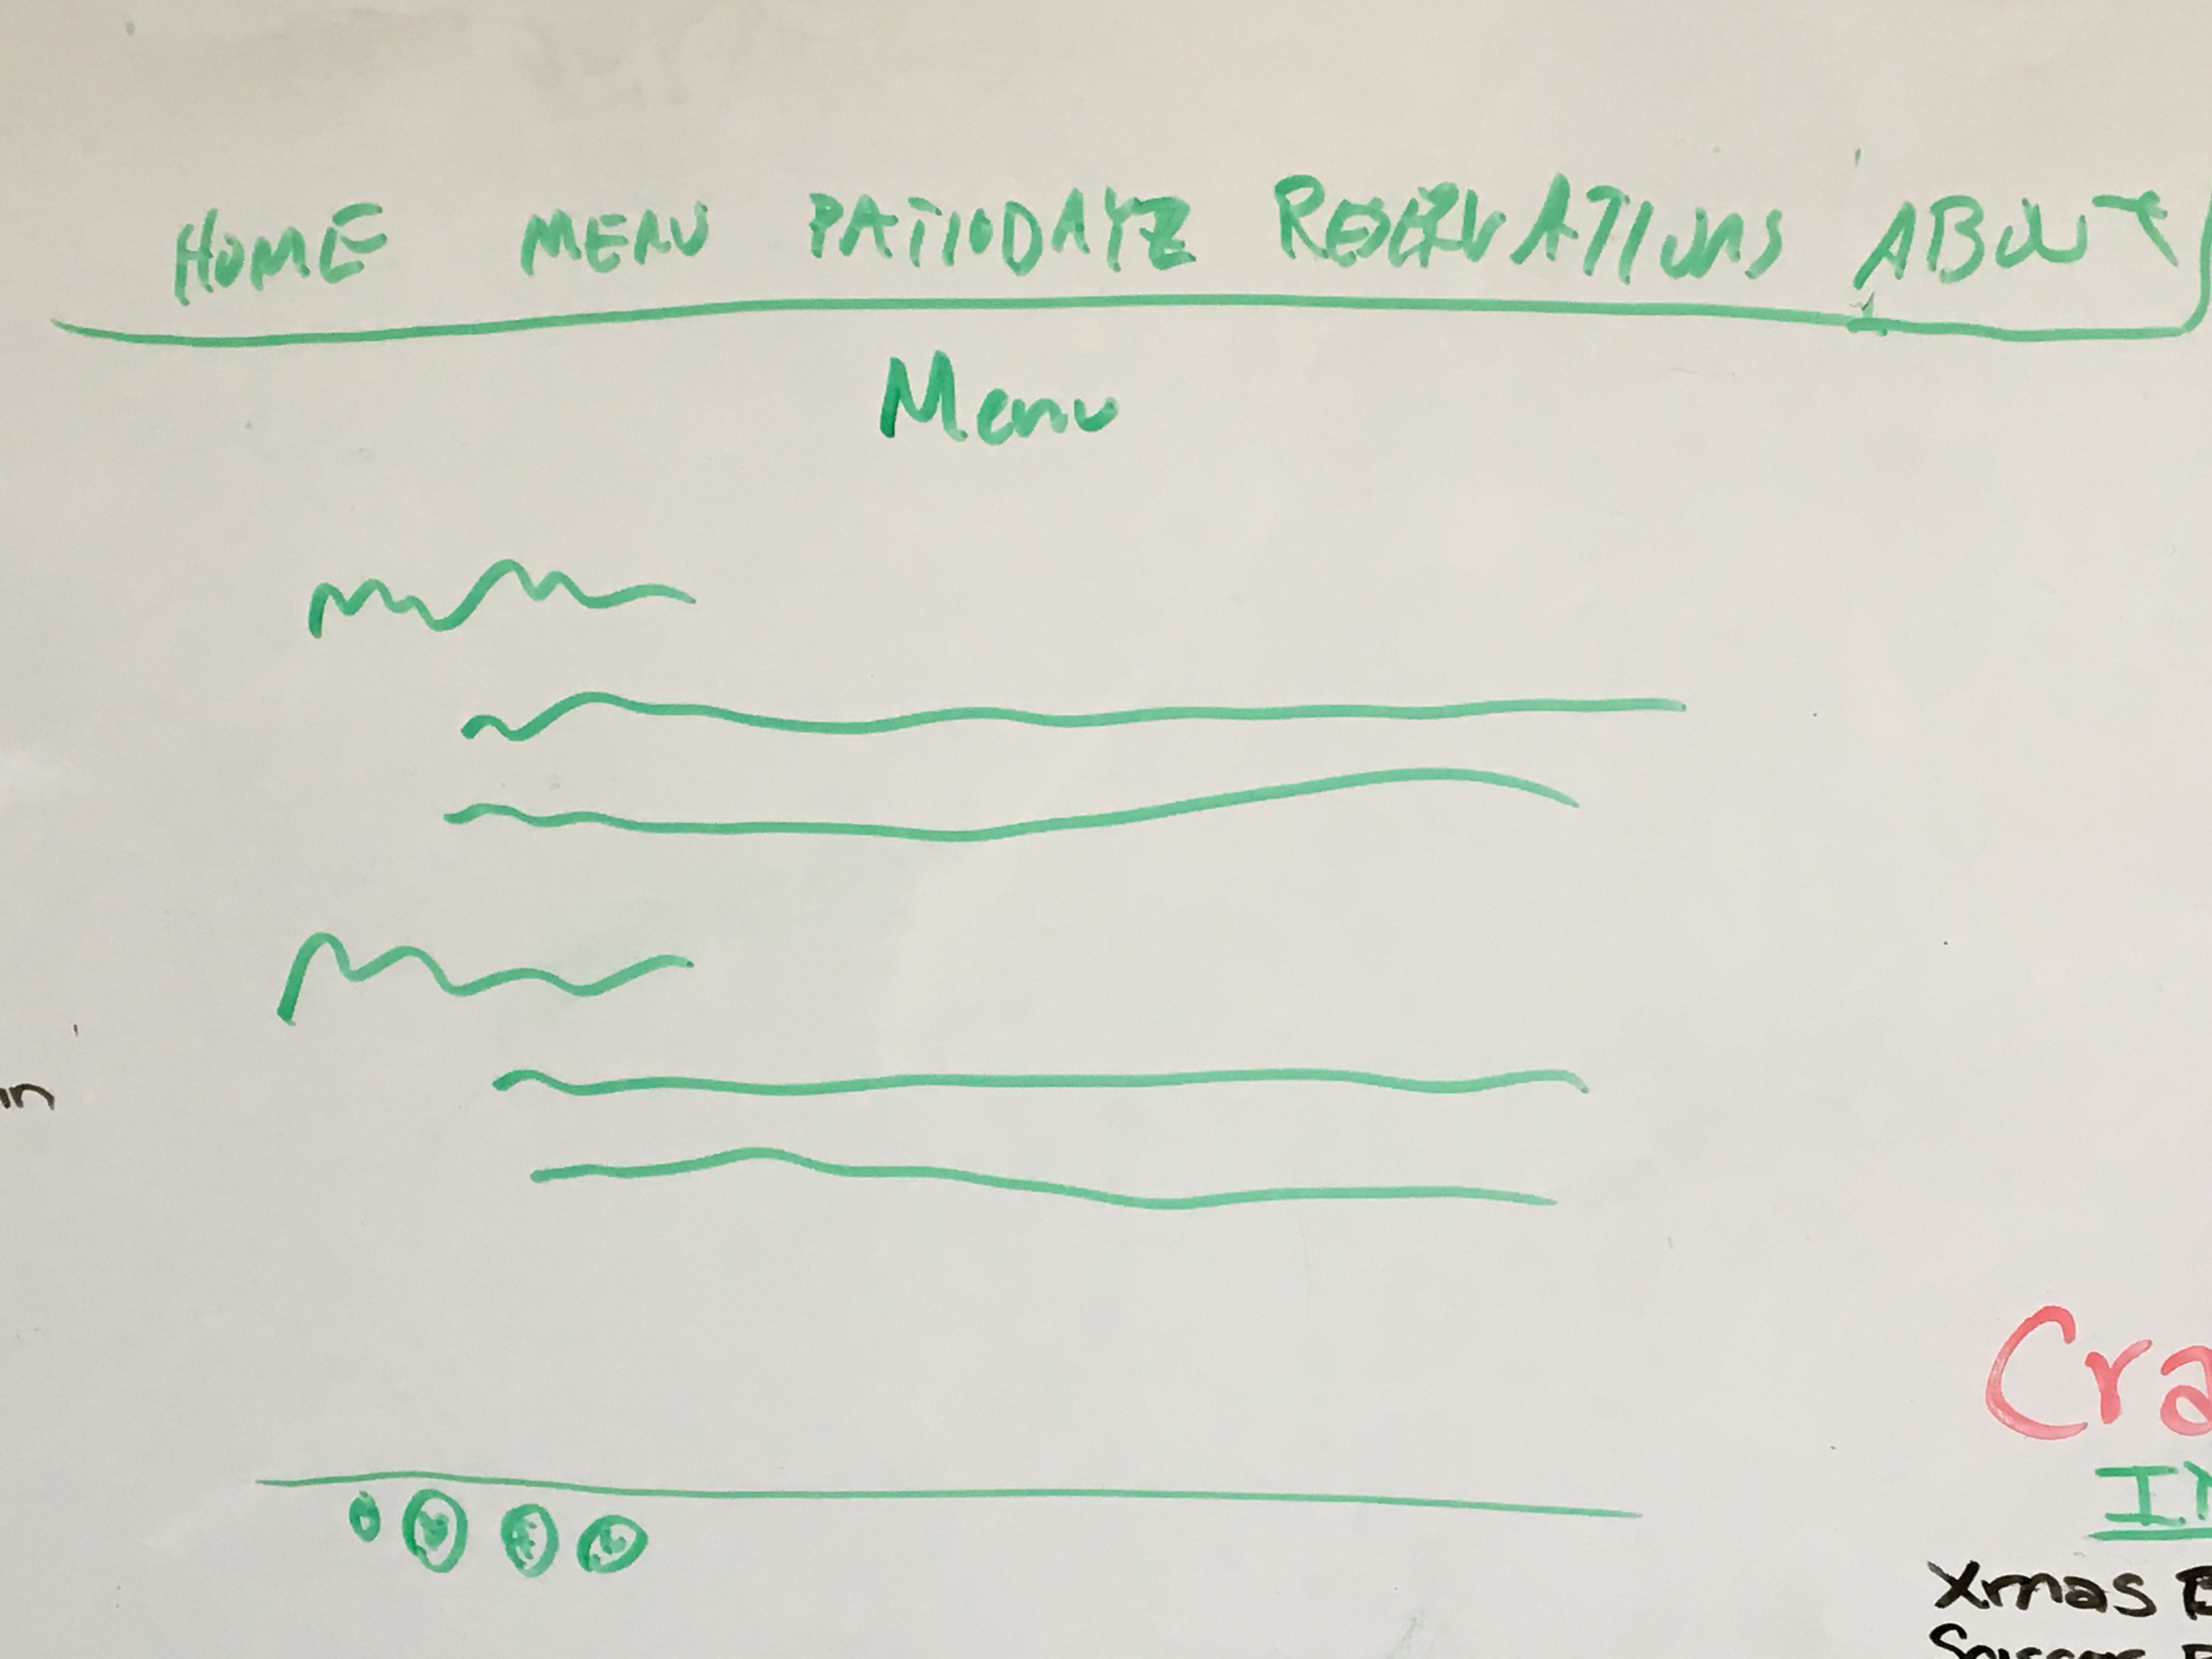 HOME MENU PATIODAYZ RESERVATIONS ABOUT
Menu
in
Cra
IN
Xmas